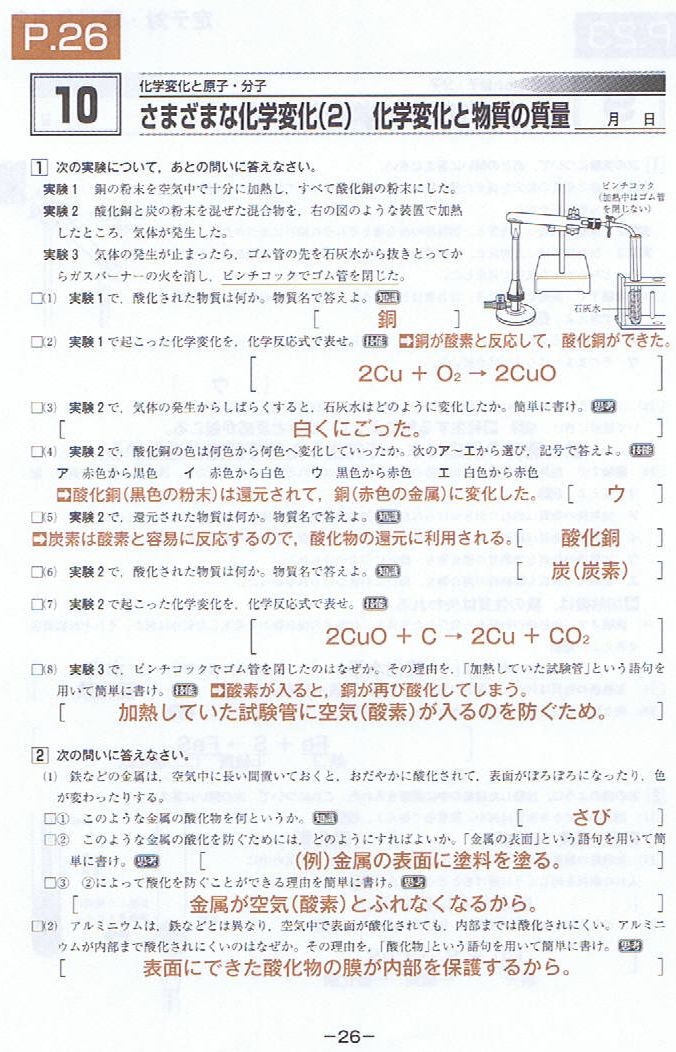 P.26
10
化学変化と原子・分子
さまざまな化学変化(2) 化学変化と物質の質量
月 日
1 次の実験について，あとの問いに答えなさい。
実験1 銅の粉末を空気中で十分に加熱し，すべて酸化銅の粉末にした。
実験2 酸化銅と炭の粉末を混ぜた混合物を，右の図のような装置で加熱
したところ，気体が発生した。
実験3 気体の発生が止まったら，ゴム管の先を石灰水から抜きとってか
らガスバーナーの火を消し，ピンチコックでゴム管を閉じた。
ピンチコック
(加熱中はゴム管
を閉じない)
石灰水
□(1) 実験1で，酸化された物質は何か。物質名で答えよ。 知識
[ 銅 ]
□(2) 実験1で起こった化学変化を，化学反応式で表せ。 技能 ➡銅が酸素と反応して，酸化銅ができた。
[ 2Cu + O₂ → 2CuO ]
□(3) 実験2で，気体の発生からしばらくすると，石灰水はどのように変化したか。簡単に書け。 思考
[ 白くにごった。 ]
□(4) 実験2で，酸化銅の色は何色から何色へ変化していったか。次のア～エから選び，記号で答えよ。 技能
ア 赤色から黒色 イ 赤色から白色 ウ 黒色から赤色 エ 白色から赤色
➡酸化銅(黒色の粉末)は還元されて，銅(赤色の金属)に変化した。 [ ウ ]
□(5) 実験2で，還元された物質は何か。物質名で答えよ。 知識
➡炭素は酸素と容易に反応するので，酸化物の還元に利用される。 [ 酸化銅 ]
□(6) 実験2で，酸化された物質は何か。物質名で答えよ。 知識 [ 炭(炭素) ]
□(7) 実験2で起こった化学変化を，化学反応式で表せ。 技能
[ 2CuO + C → 2Cu + CO₂ ]
□(8) 実験3で，ピンチコックでゴム管を閉じたのはなぜか。その理由を，「加熱していた試験管」という語句を
用いて簡単に書け。 技能 ➡酸素が入ると，銅が再び酸化してしまう。
[ 加熱していた試験管に空気(酸素)が入るのを防ぐため。 ]
2 次の問いに答えなさい。
(1) 鉄などの金属は，空気中に長い間置いておくと，おだやかに酸化されて，表面がぼろぼろになったり，色
が変わったりする。
□① このような金属の酸化物を何というか。 知識 [ さび ]
□② このような金属の酸化を防ぐためには，どのようにすればよいか。「金属の表面」という語句を用いて簡
単に書け。 思考 [ (例)金属の表面に塗料を塗る。 ]
□③ ②によって酸化を防ぐことができる理由を簡単に書け。 思考
[ 金属が空気(酸素)とふれなくなるから。 ]
□(2) アルミニウムは，鉄などとは異なり，空気中で表面が酸化されても，内部までは酸化されにくい。アルミニ
ウムが内部まで酸化されにくいのはなぜか。その理由を，「酸化物」という語句を用いて簡単に書け。 思考
[ 表面にできた酸化物の膜が内部を保護するから。 ]
－26－